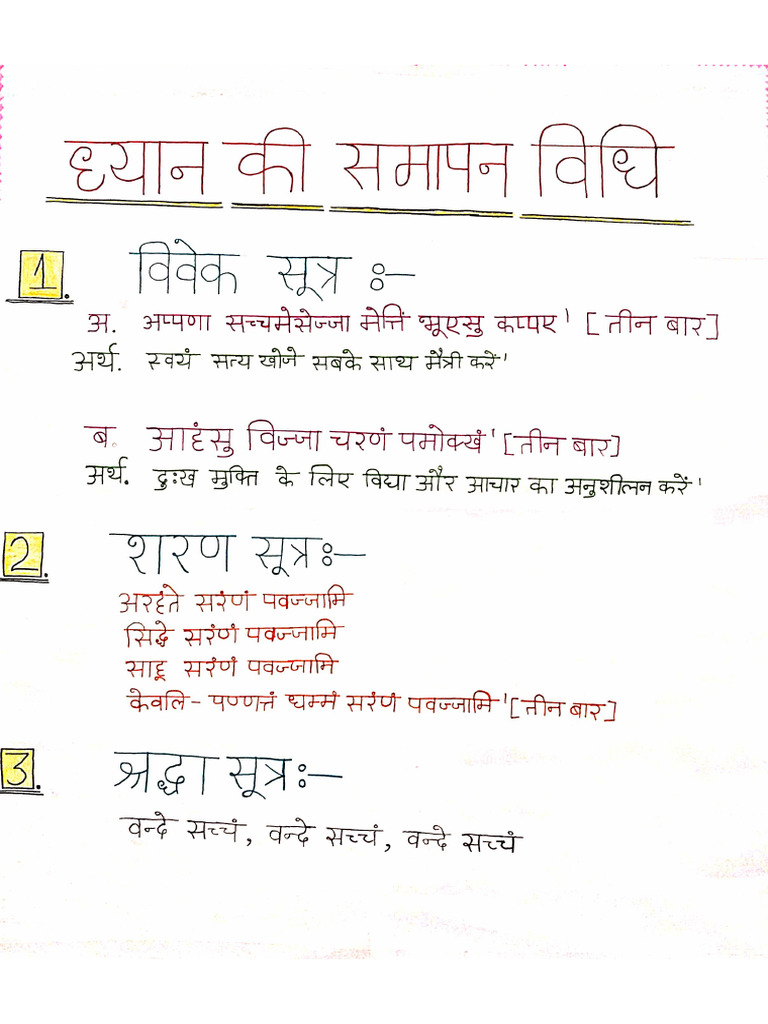 ध्यान की समापन विधि
1. विवेक सूत्र :-
अ. अप्पणा सच्चमेसेज्जा मेत्तिं भूएसु कप्पए' [तीन बार]
अर्थ. स्वयं सत्य खोजे सबके साथ मैत्री करें'
ब. आहंसु विज्जा चरणं पमोक्खं' [तीन बार]
अर्थ. दुःख मुक्ति के लिए विद्या और आचार का अनुशीलन करें'
2. शरण सूत्र :-
अरहंते सरंणं पवज्जामि
सिद्धे सरंणं पवज्जामि
साहू सरंणं पवज्जामि
केवलि - पण्णत्तं धम्मं सरंणं पवज्जामि' [तीन बार]
3. श्रद्धा सूत्र :-
वन्दे सच्चं, वन्दे सच्चं, वन्दे सच्चं